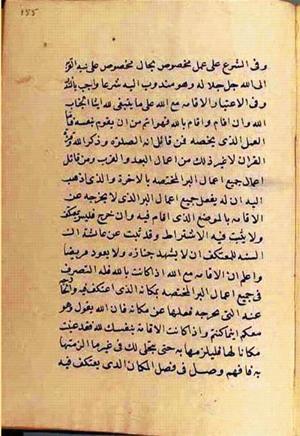 ١٥٥
وفى الشرع على عمل مخصوص بحال مخصوص على نية القربة
الى الله جل جلاله وهو مندوب اليه شرعا واجب بالنذر
وفى الاعتبار الاقامة مع الله على ما ينبغى لله ايثارا لجناب
الله وان اقام بالله فهو اتم من ان يقوم بنفسه فاما
العمل الذى يخصه فمن قائل انه الصلوة وذكر الله وقراءة
القران لا غير ذلك من اعمال البر والقرب ومن قائل
اعمال جميع اعمال البر المختصة بالاخرة والذى اذهب
اليه ان له يفعل جميع اعمال البر الذى لا يخرجه عن
الاقامة بالموضع الذى اقام فيه وان خرج فليس بمعتكف
ولا يثبت فيه الاشتراط وقد ثبت عن عائشة ان
السنة للمعتكف ان لا يشهد جنازة ولا يعود مريضا
واعلم ان الاقامة مع الله اذا كانت بالله فله التصرف
فى جميع اعمال البر المختصة بمكانه الذى اعتكف فيه والخارجة
عنه التى يخرجه فعلها عن مكانه فان الله يقول وهو
معكم اينما كنتم واذا كانت الاقامة بنفسك لله فقد عينت
مكانا لها فليلزمها به حتى يتجلى لك فى غير ما الزمتها
به فافهم وصل فى فصل المكان الذى يعتكف فيه